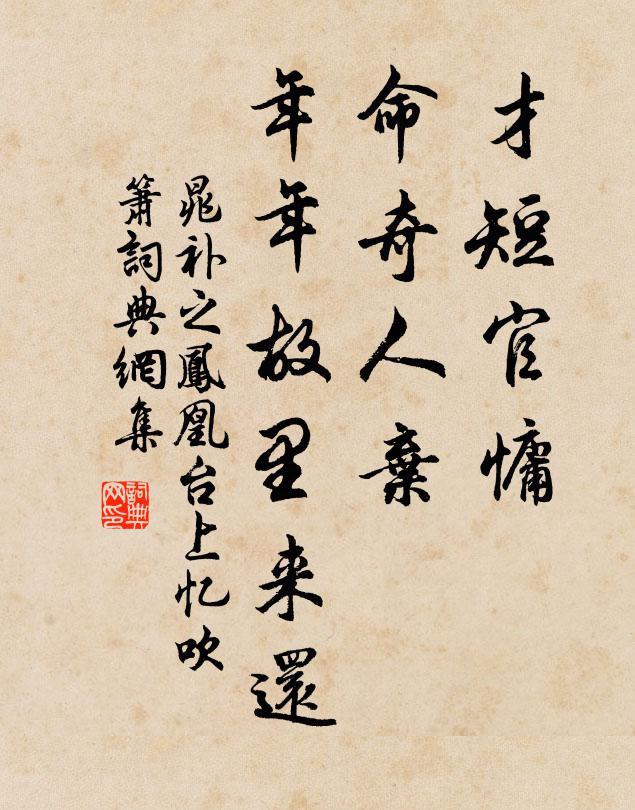 才短官慵
命奇人棄
年年故里来還
晁补之鳳凰台上忆吹
簫詞典網集
詞典网印